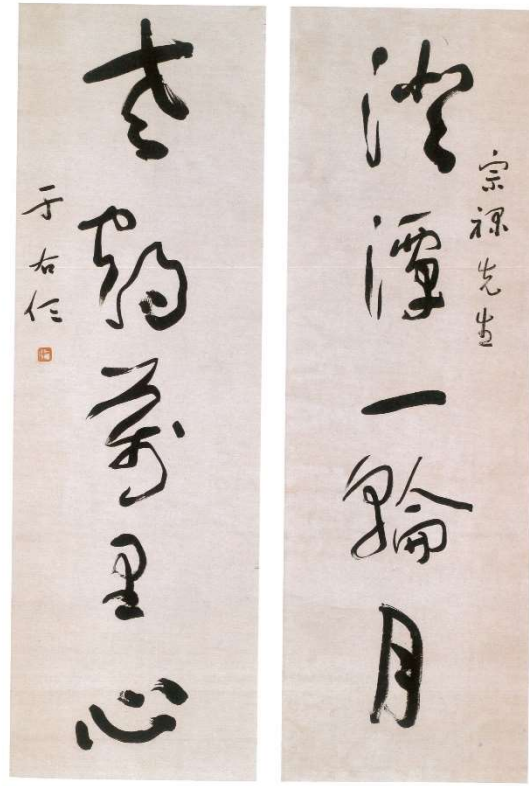 宗禄先生
澄潭一輪月
老鶴萬里心
于右任